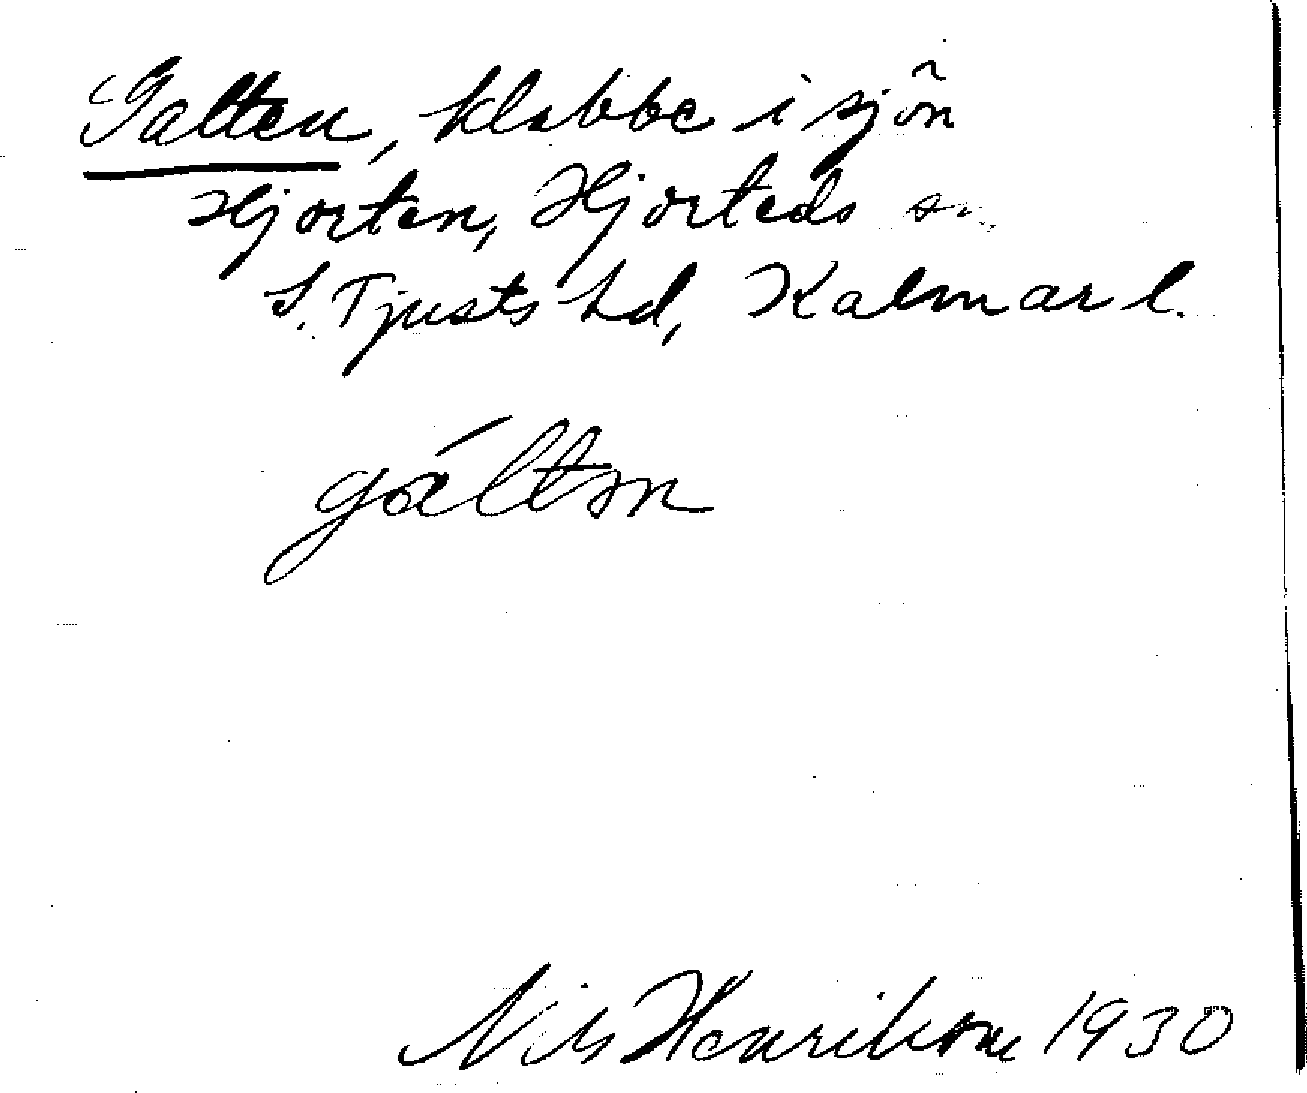 Galten, klabbe i sjön
Hjorten, Hjorteds sn.
S. Tjusts hd, Kalmar l.
gáltən
Nils Henrikson 1930